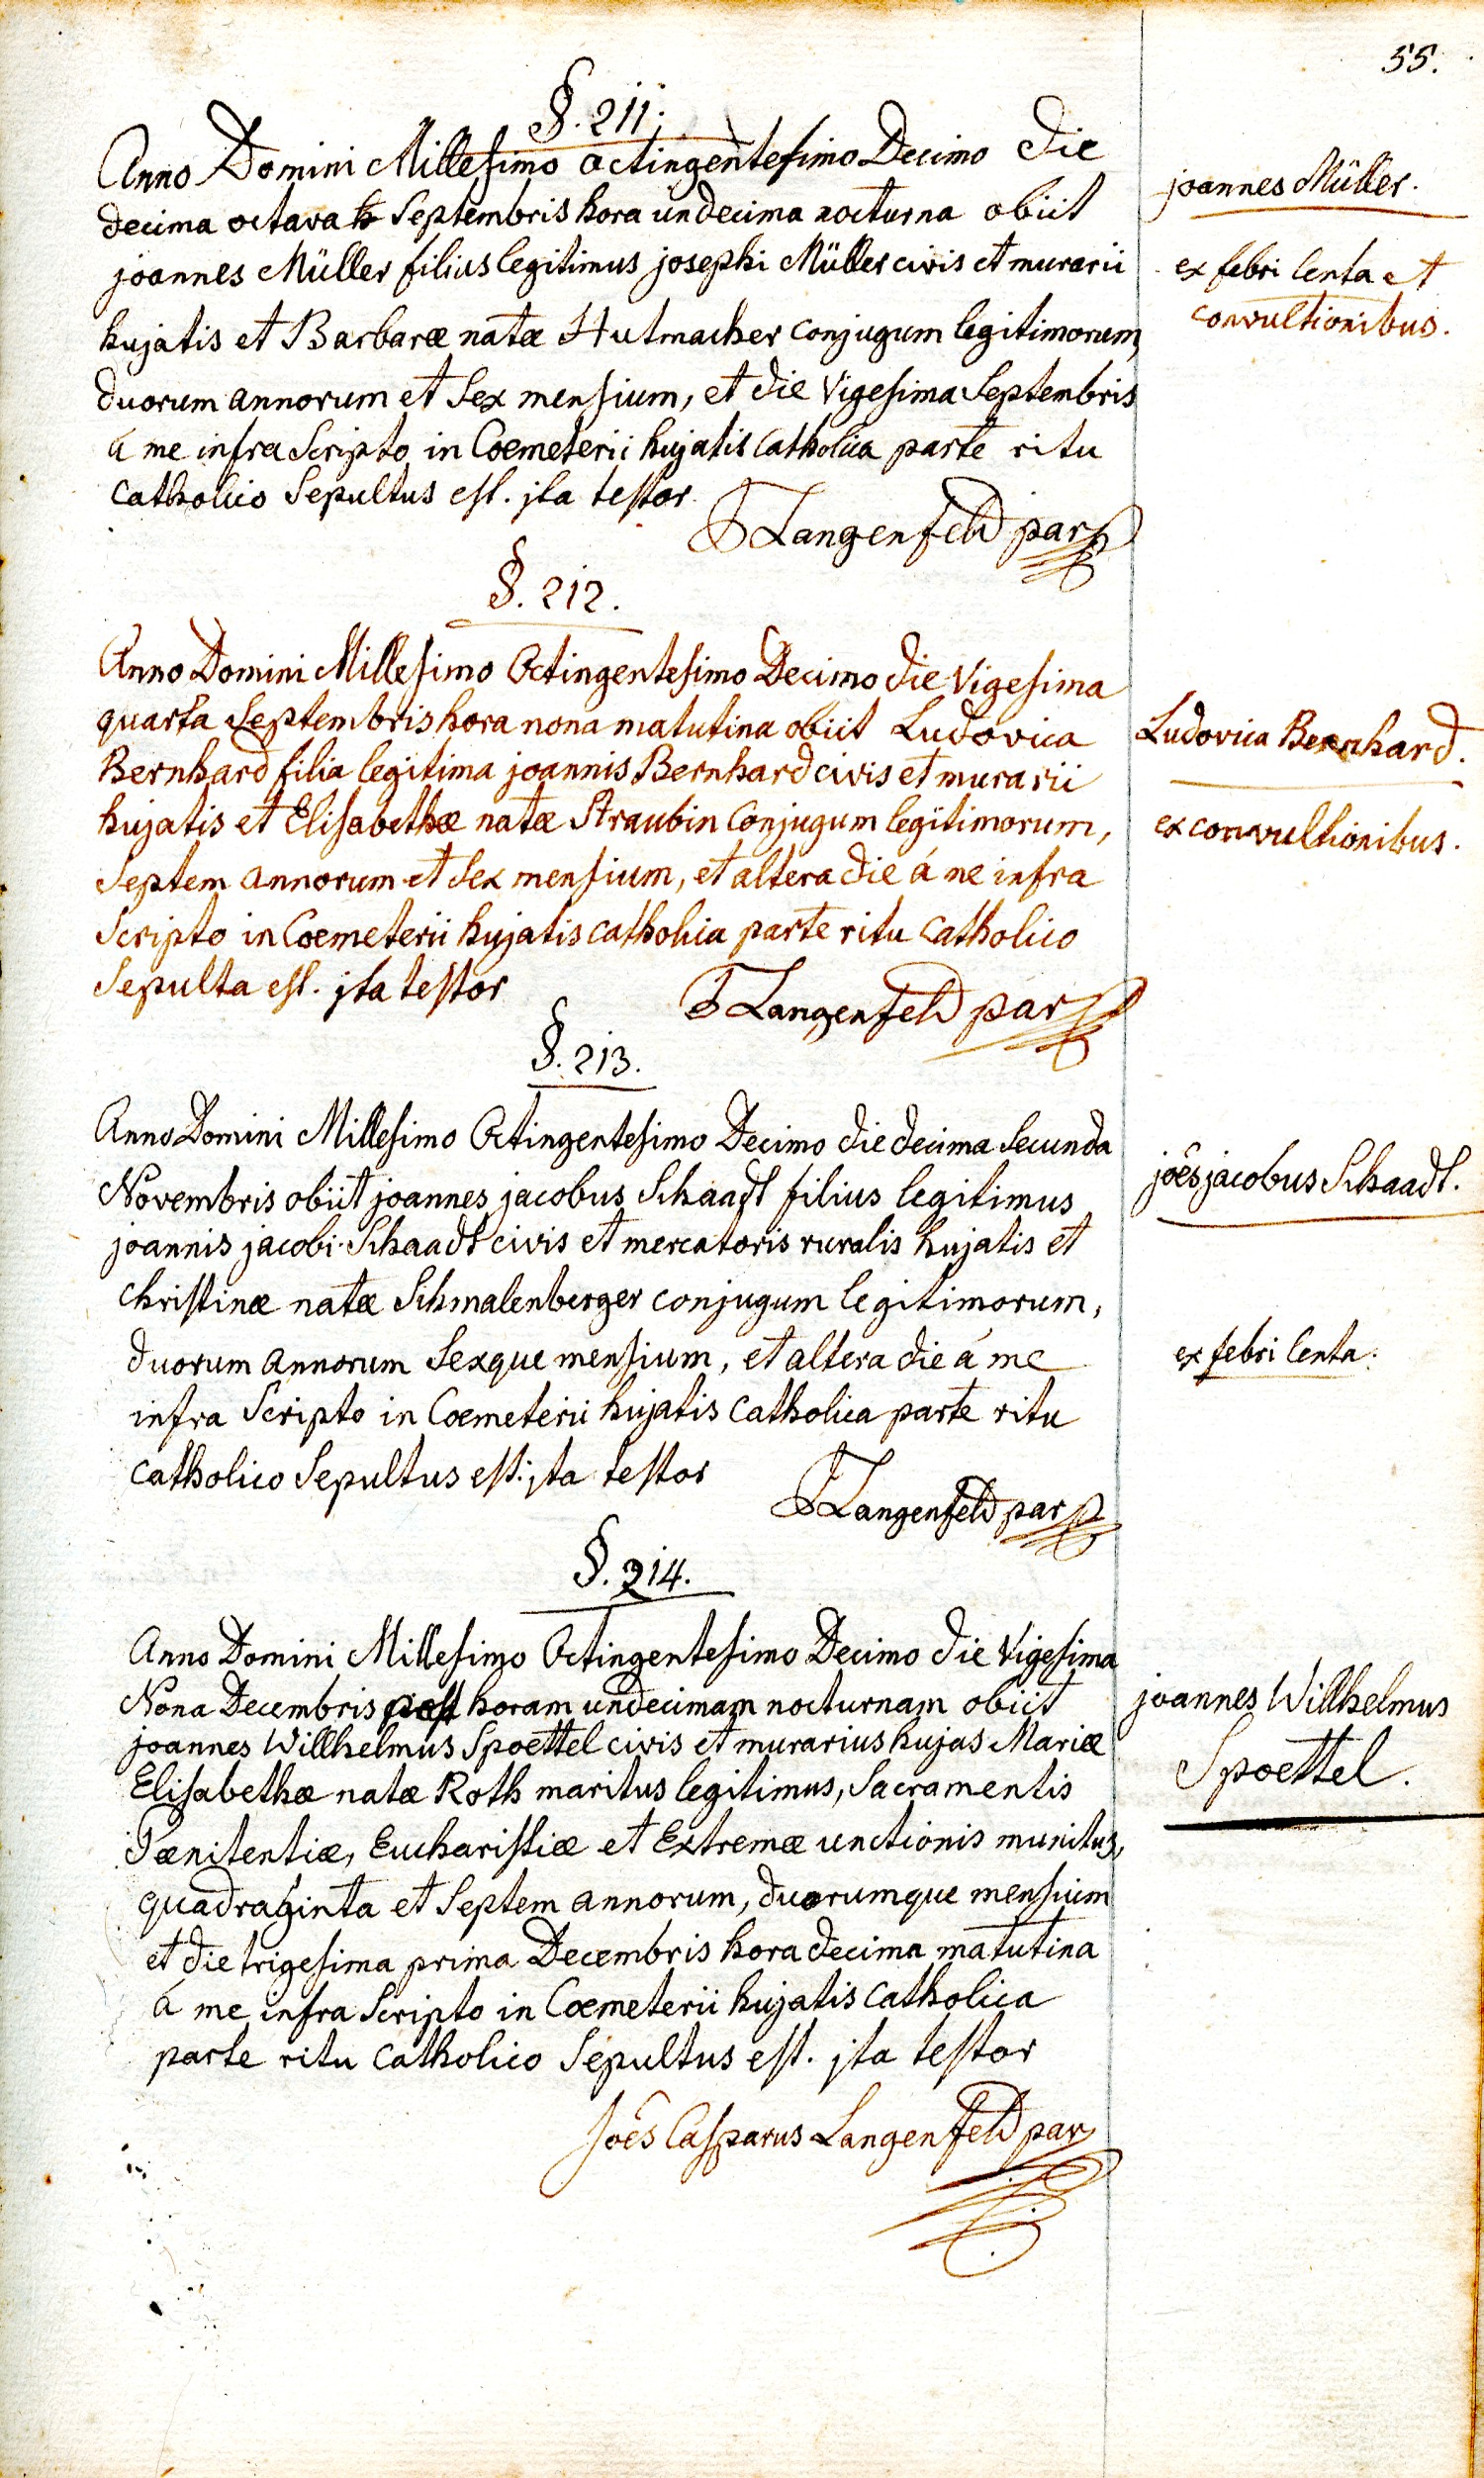 55.
§. 211.
Anno Domini Millesimo octingentesimo Decimo die
decima octava Septembris hora undecima nocturna obiit
joannes Müller filius legitimus josephi Müller civis et murarii
hujatis et Barbaræ natæ Hutmacher conjugum legitimorum,
duorum annorum et Sex mensium, et die Vigesima Septembris
á me infra Scripto in Coemeterii hujatis Catholica parte ritu
catholico Sepultus est. jta testor
Langenfeld par
joannes Müller.
ex febri lenta et
convultionibus.
§. 212.
Anno Domini Millesimo Octingentesimo Decimo die Vigesima
quarta Septembris hora nona matutina obiit Ludovica
Bernhard filia legitima joannis Bernhard civis et murarii
hujatis et Elisabethæ natæ Straubin Conjugum legitimorum,
Septem annorum et Sex mensium, et altera die á me infra
Scripto in Coemeterii hujatis catholica parte ritu Catholico
Sepulta est. jta testor
Langenfeld par
Ludovica Bernhard.
ex convultionibus.
§. 213.
Anno Domini Millesimo Octingentesimo Decimo die decima Secunda
Novembris obiit joannes jacobus Schaadt filius legitimus
joannis jacobi Schaadt civis et mercatoris ruralis hujatis et
christinæ natæ Schmalenberger conjugum legitimorum,
duorum annorum Sexque mensium, et altera die á me
infra Scripto in Coemeterii hujatis Catholica parte ritu
catholico Sepultus est. jta testor
Langenfeld par
joês jacobus Schaadt.
ex febri lenta.
§. 214.
Anno Domini Millesimo Octingentesimo Decimo die Vigesima
Nona Decembris post horam undecimam nocturnam obiit
joannes Willhelmus Spoettel civis et murarius hujas Mariæ
Elisabethæ natæ Roth maritus legitimus, Sacramentis
Pænitentiæ, Eucharistiæ et Extremæ unctionis munitus,
quadraginta et Septem annorum, duorumque mensium
et die trigesima prima Decembris hora decima matutina
á me infra Scripto in Coemeterii hujatis Catholica
parte ritu Catholico Sepultus est. jta testor
Joês Casparus Langenfeld par
joannes Willhelmus
Spoettel.